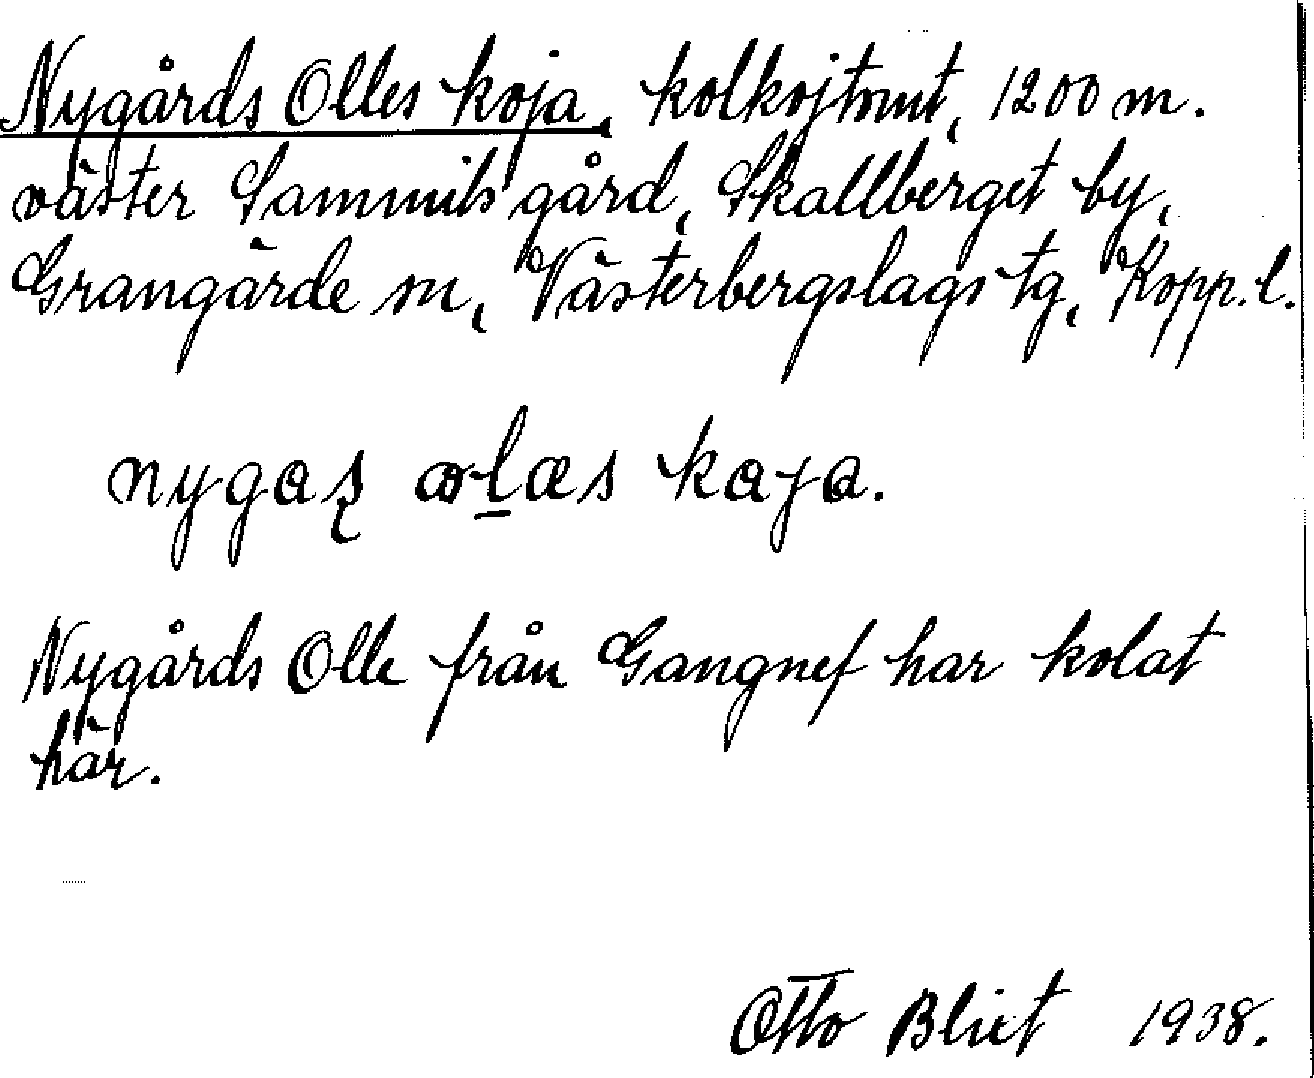 Nygårds Olles koja, kolkojtomt, 1200 m.
väster Sammils gård, Skallberget by,
Grangärde sn, Västerbergslags tg, Kopp. l.
nygaʂ ɷlæs kaja.
Nygårds Olle från Gangnef har kolat
här.
Otto Blixt 1938.